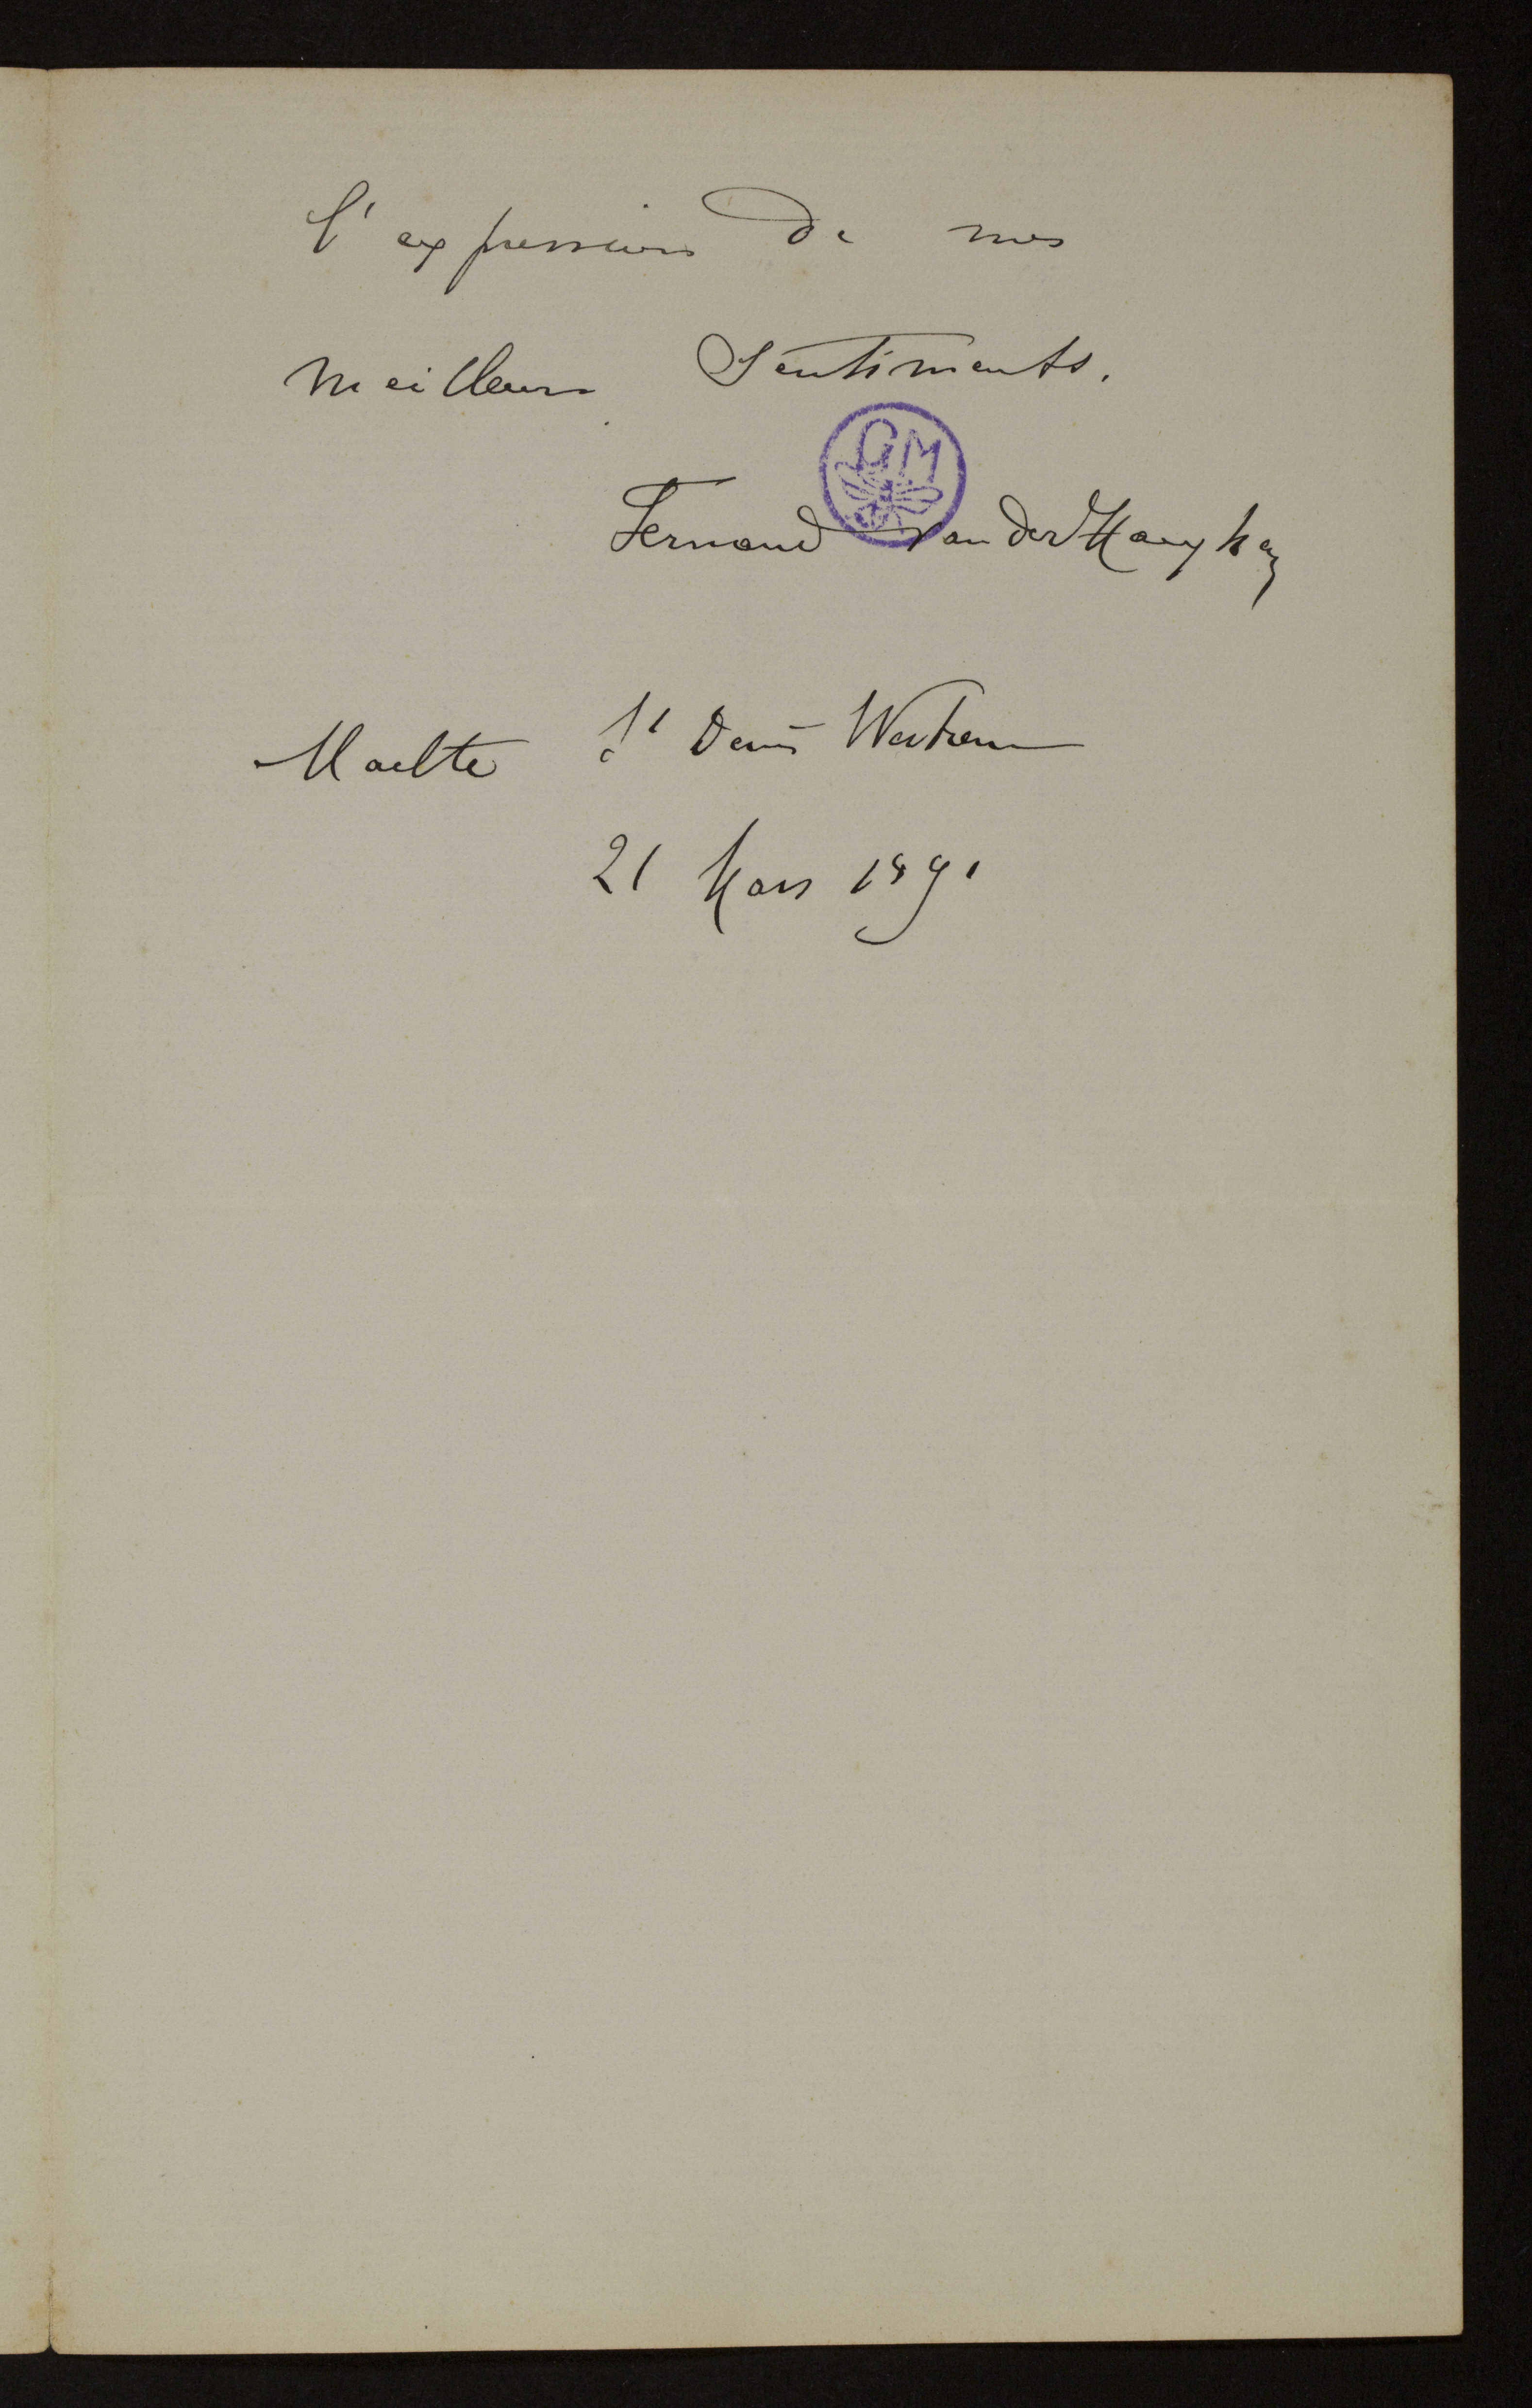 l'expression de mes
meilleurs Sentiments.
GM
Fernand Vander Haeghen
Maelte St Denis Westrem
21 Mars 1891